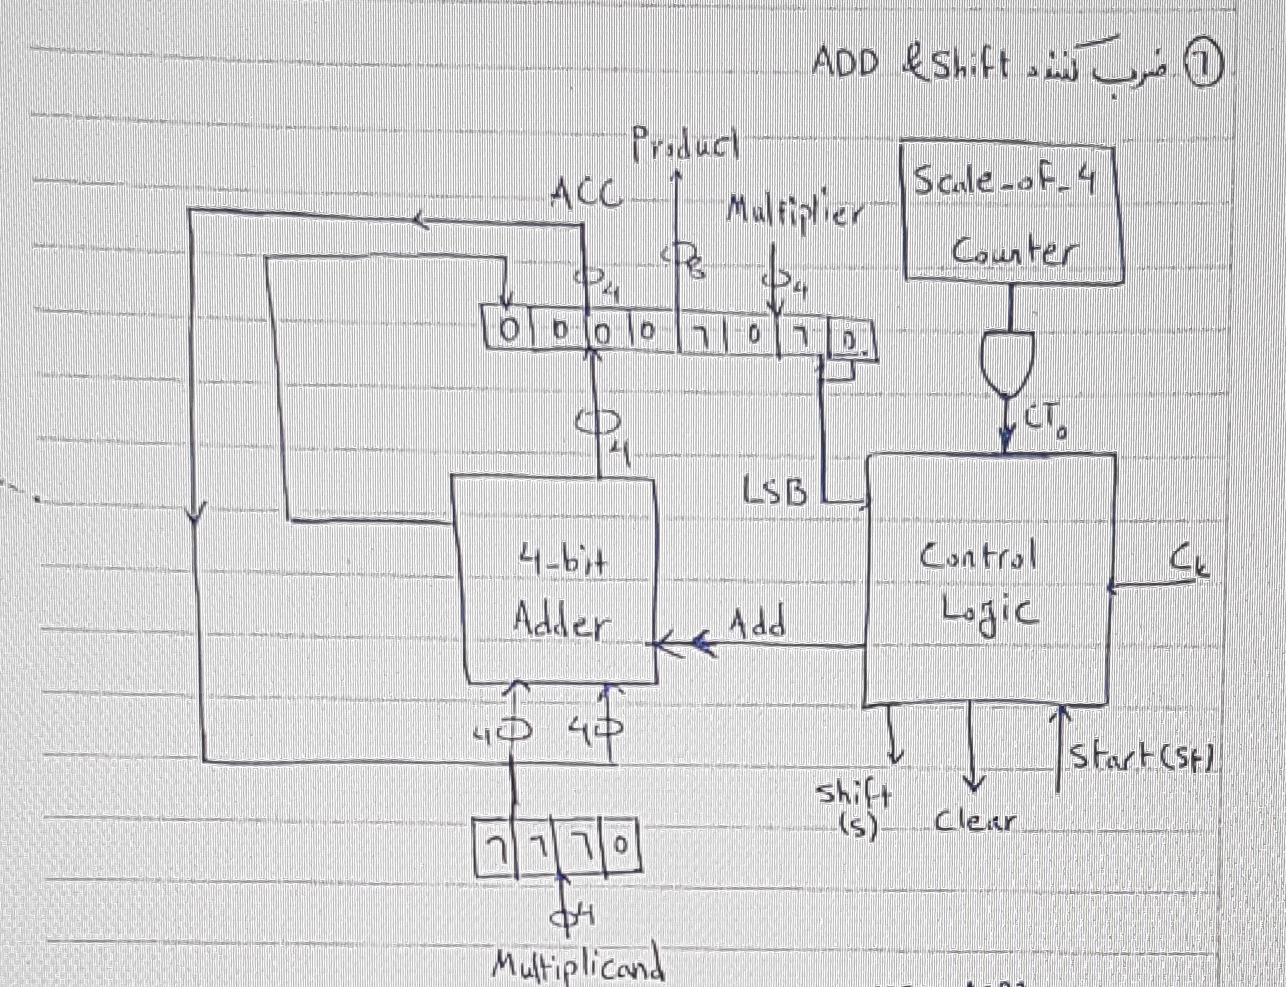 ① ضرب کننده ADD & Shift
Product
ACC
Multiplier
Scale-of-4
Counter
4
8
4
0 0 0 0 1 0 1 0
4
CT₀
LSB
4-bit
Adder
Control
Logic
Ck
Add
4 4
Shift
(S)
Clear
Start(St)
1 1 1 0
4
Multiplicand